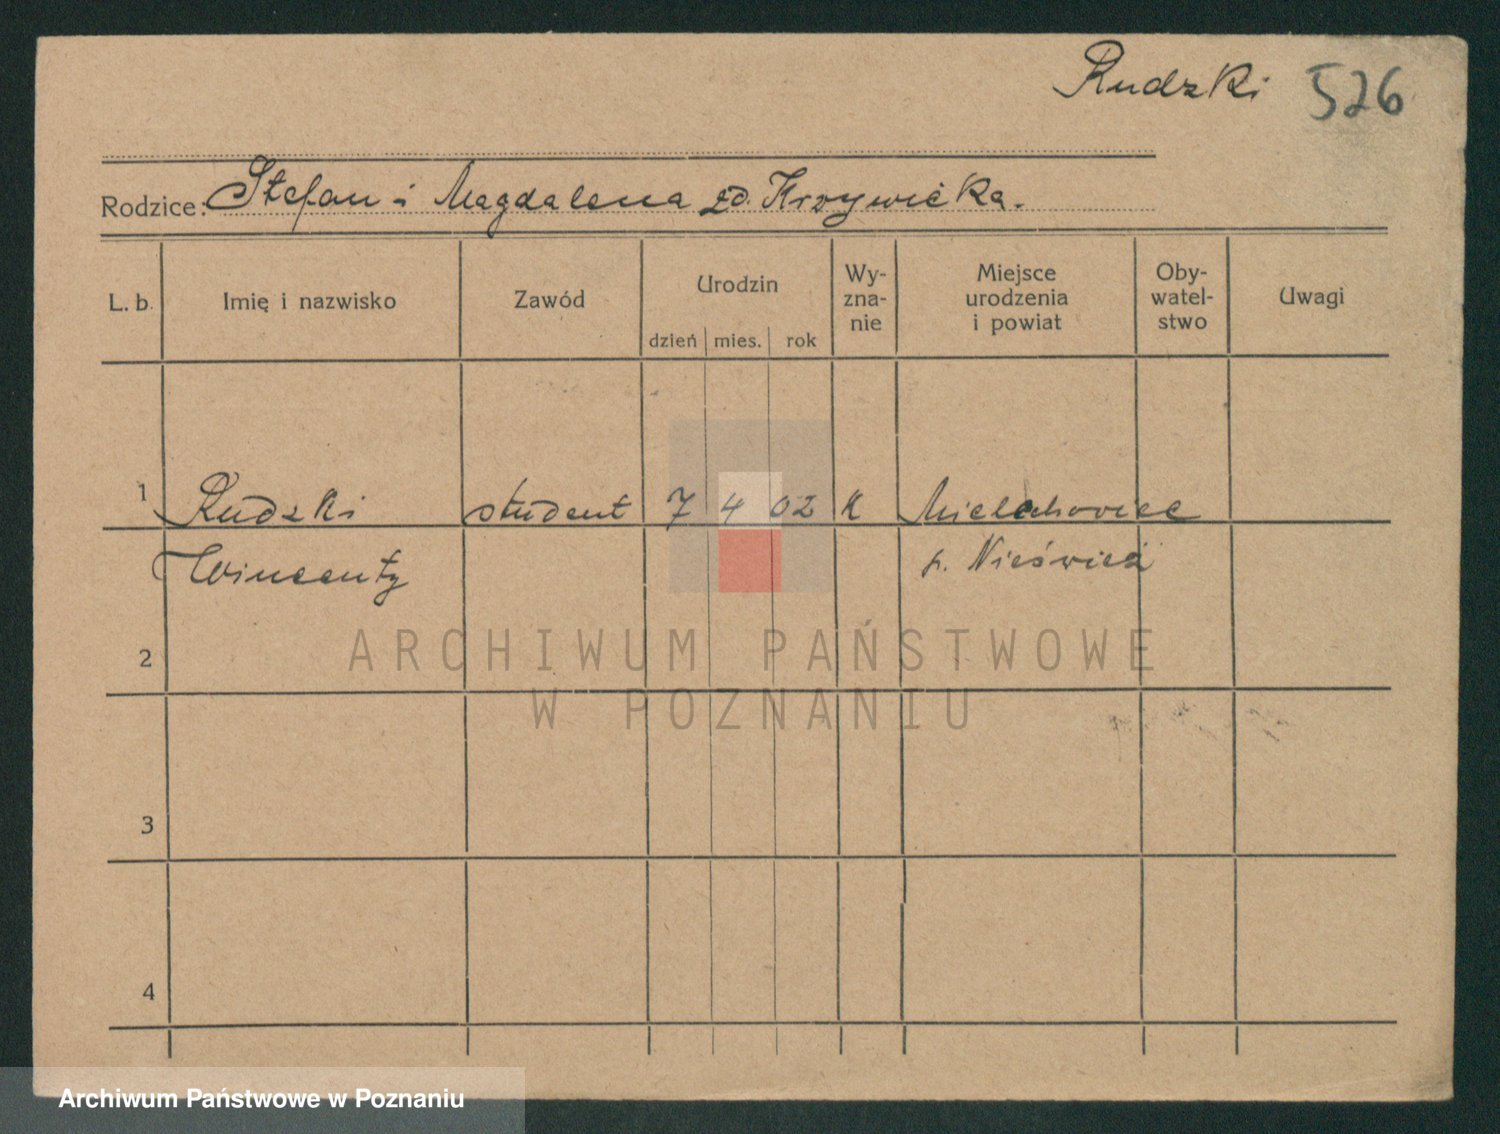 Rudzki 526
Rodzice: Stefan i Magdalena zd. Krzywicka.
L. b. Imię i nazwisko Zawód Urodzin dzień mies. rok Wy-zna-nie Miejsce urodzenia i powiat Oby-watel-stwo Uwagi
1 Rudzki student 7 4 02 K
Wincenty p. Nieśwież
2
3
4
ARCHIWUM PAŃSTWOWE
W POZNANIU
Archiwum Państwowe w Poznaniu